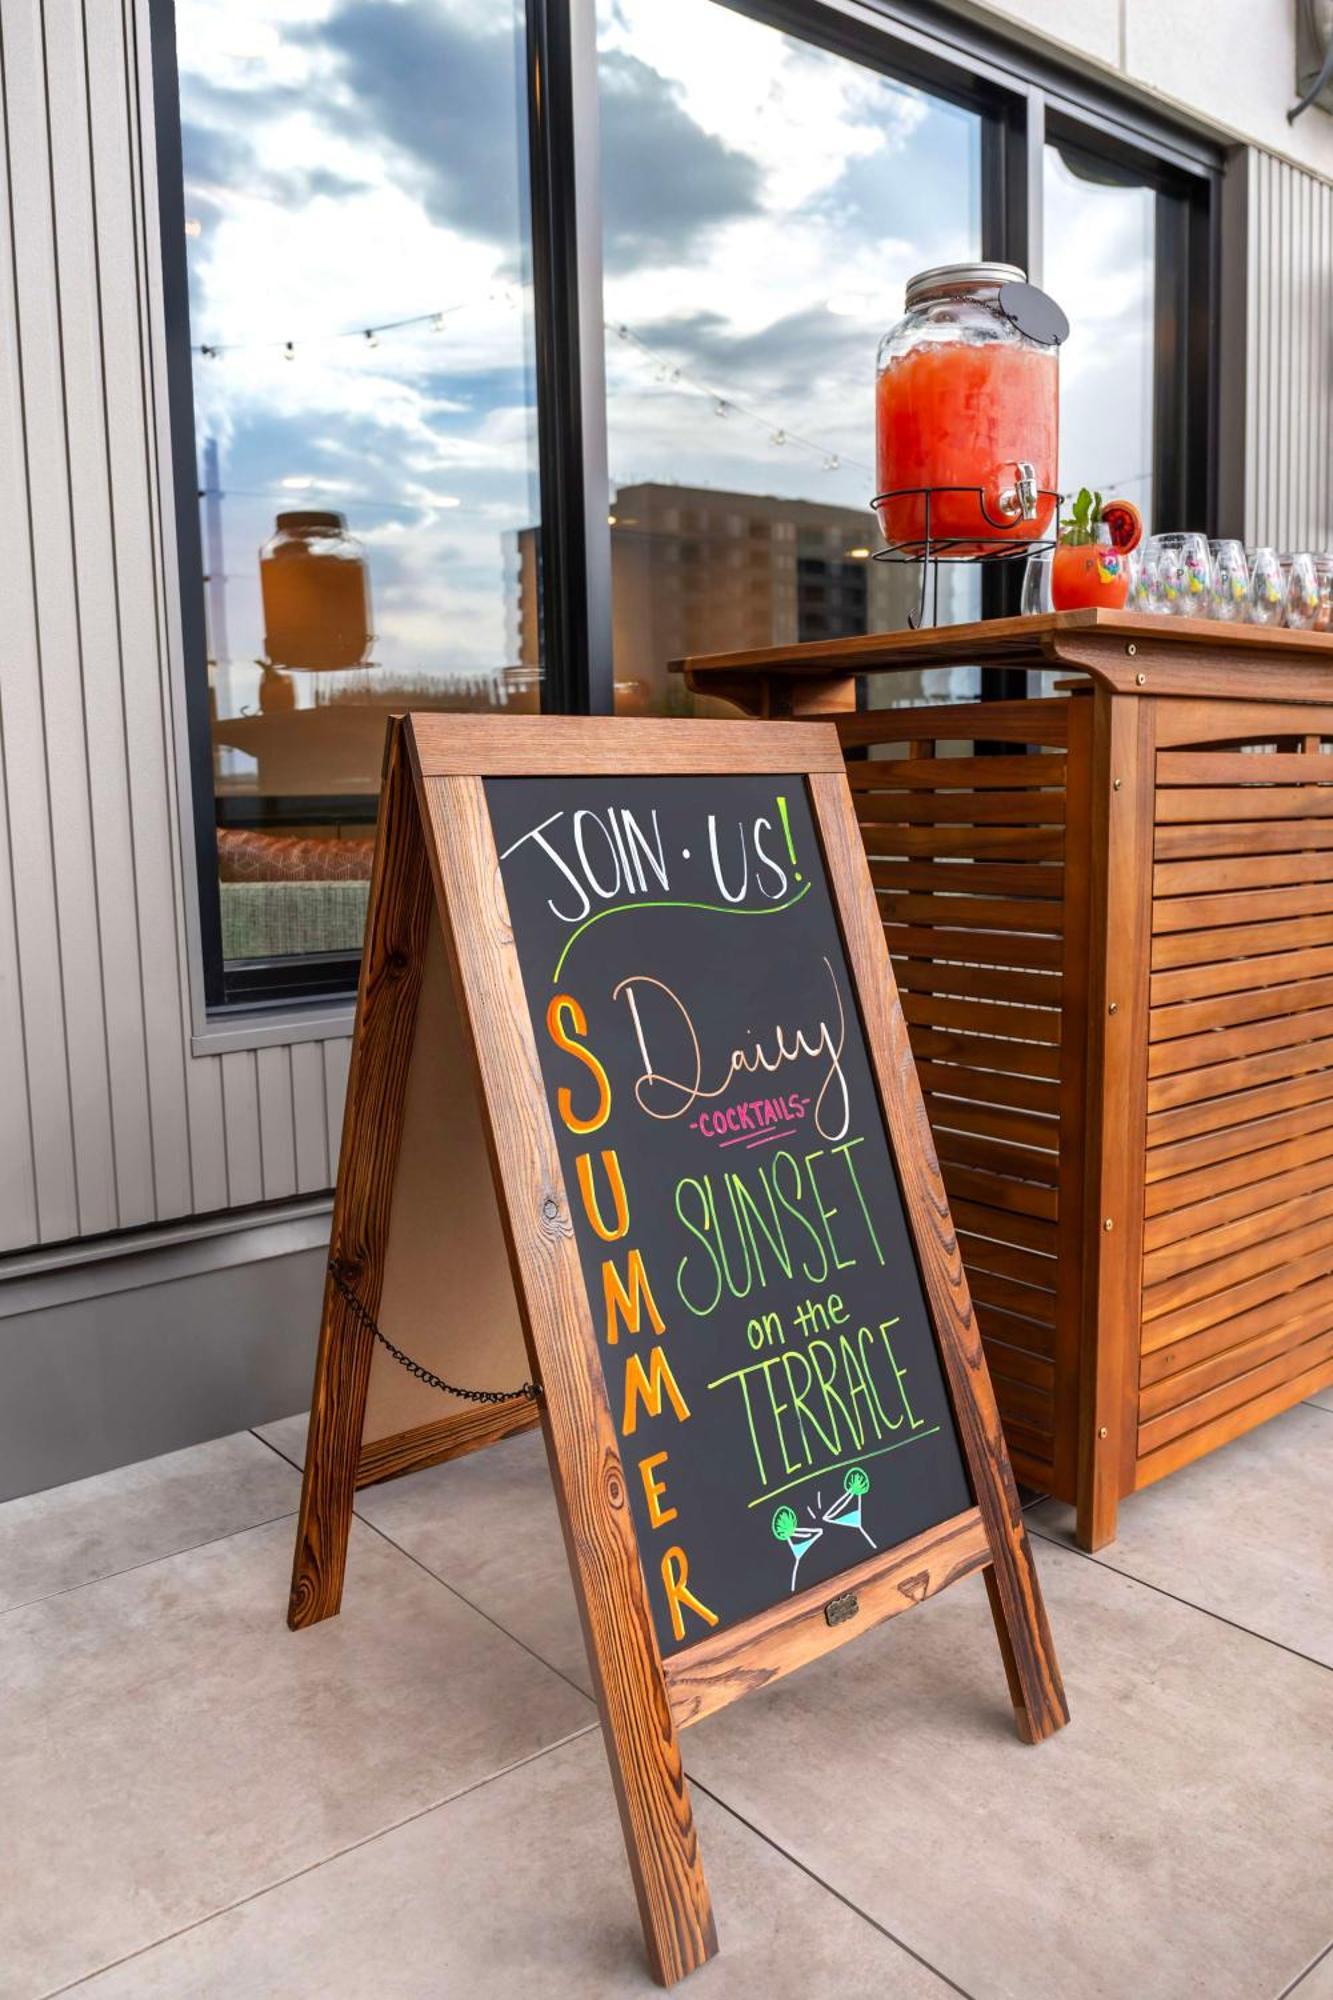 JOIN · US!
SUMMER
Daily
-COCKTAILS-
SUNSET
on the
TERRACE